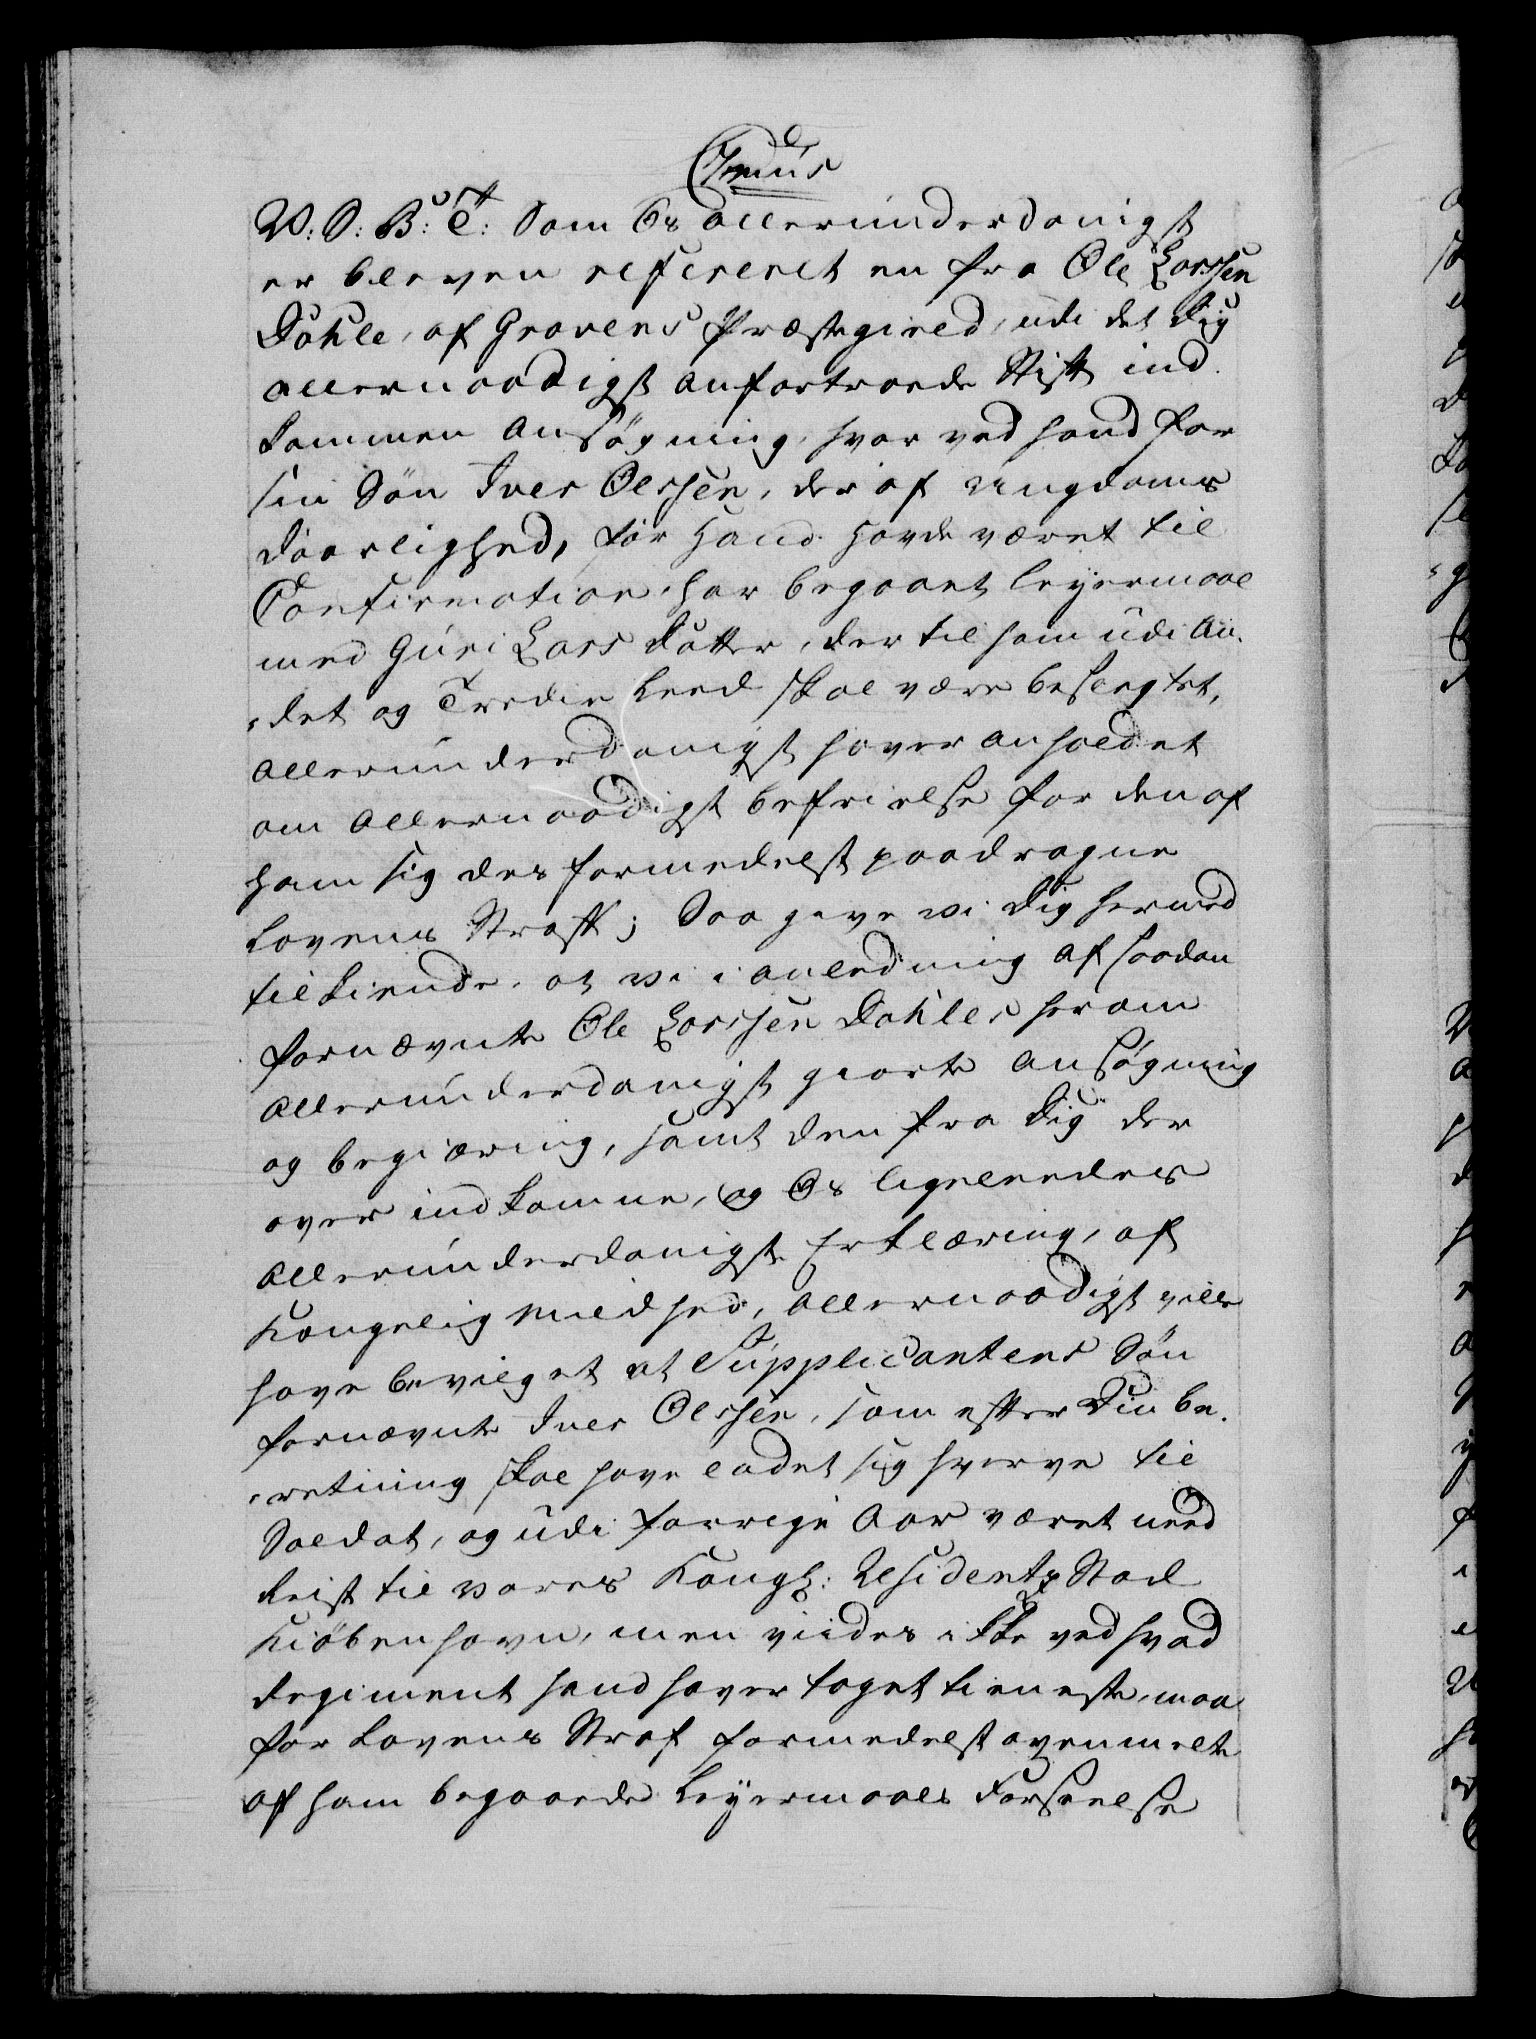 V. S: B: T: Som Os allerunderdanigst
er bleven refereret en fra Ole Larssen
Dahle, af Gravens Præstegield, udi det dig
allernaadigst anfortroede Stift ind
kommen Ansøgning, hvor ved hand for
sin Søn Iver Olssen, der af Ungdoms
Daarlighed, før Hand havde været til
Confirmation, har begaaet leyermaal
med Guri Lars Datter, der til ham udi An-
„det og Tredie Leed skal være beslegtet,
allerunderdanigst haver anholdet
om allernaadigst befrielse for den af
ham sig des formedelst paadragne
Lovens Straff; Saa give vi dig hermed
tilkiende, at vi i anledning af saadan
fornævnte Ole Larssen Dahles herom
allerunderdanigst giorte Ansøgning
og begiæring, samt den fra Dig der
over indkomne, og Os ligeleedes
allerunderdanigst Erklæring, af
Kongelig Mildhed, allernaadigst ville
have bevilget at Supplicantens Søn
fornævnte Iver Olssen, som efter Din be-
„retning skal have ladet sig hverve til
Soldat, og udi forrige Aar været need
reist til vores Kongl: Residentz Stad
Kiøbenhavn, men viides ikke ved hvad
Regiment hand haver taget tieneste, maa
for Lovens Straf formedelst ovenmelte
af ham begaaede Leyermaals Forseelse